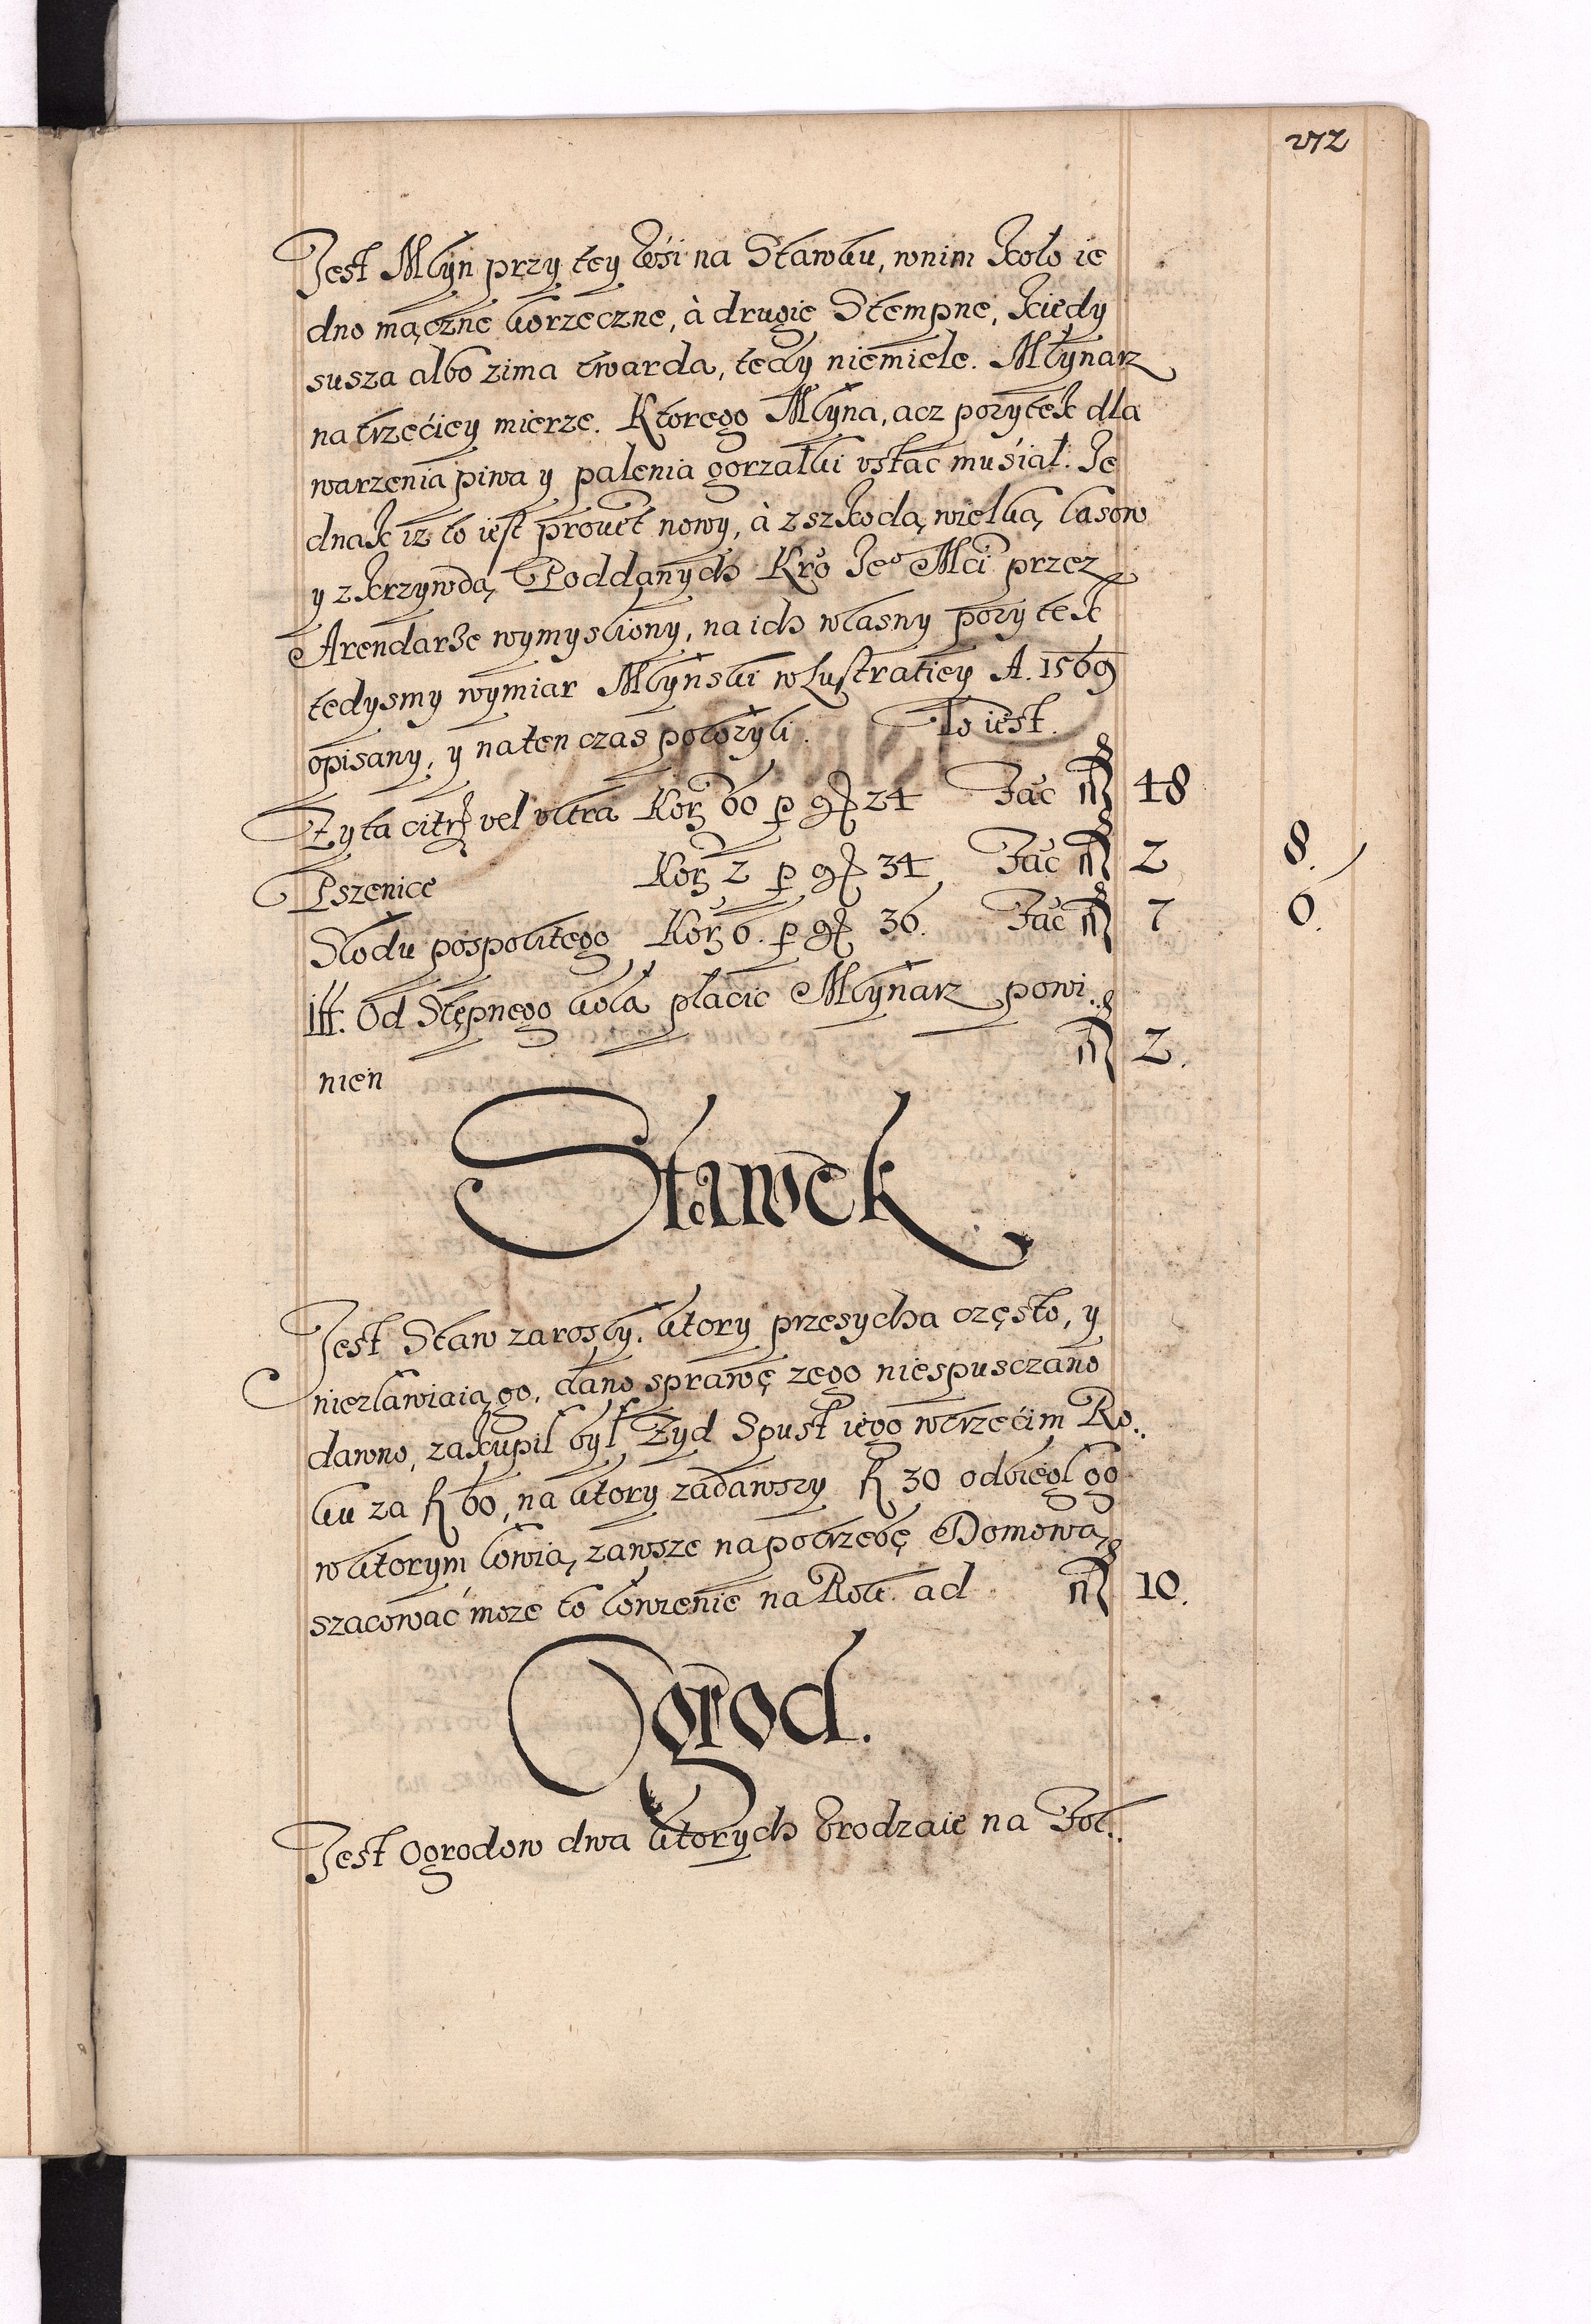 272
Jest Młyn przy tey wsi na Stawku, wnim koło ie
dno mączne korzeczne, à drugie Stempne, kiedy
susza albo zima twarda, tedy niemiele. Młynarz
na trzećiey mierze. Ktorego Młyna, acz pożytek dla
warzenia piwa y palenia gorzałki vstac muśiał. Je
dnak iż to iest prouēt nowy, à z szkodą wielką lasow
y z krzywdą Poddanych Kro Jeº Mći przez
Arendarze wymyslony, na ich własny pożytek
tedysmy wymiar Młynski w Lustratiey A. 1569
opisany, y na ten czas położyli. To iest.
Żyta citrą vel vltra Korz 60 p gł 24 Fac fl 48
Pszenice Korz 2 p gł 34 Fac fl 2 8.
Słodu pospolitego Korz 6. p gł 36. Fac fl 7 6.
Itt. Od Stępnego koła płacic Młynarz powi..
nien fl 2.
Stawek
Jest Staw zarosły, ktory przesycha często, y
niezławiaią go, dano sprawę ze go niespusczano
dawno, zakupił był Żyd Spust iego w trzećim Ro..
ku za fl 60, na ktory zadawszy fl 30 odbiegl go
w ktorym łowią zawsze na potrzebę Domową
szacować może to łowienie na Rok ad fl 10.
Ogrod.
Jest Ogrodow dwa ktorych Vrodzaie na Fol..